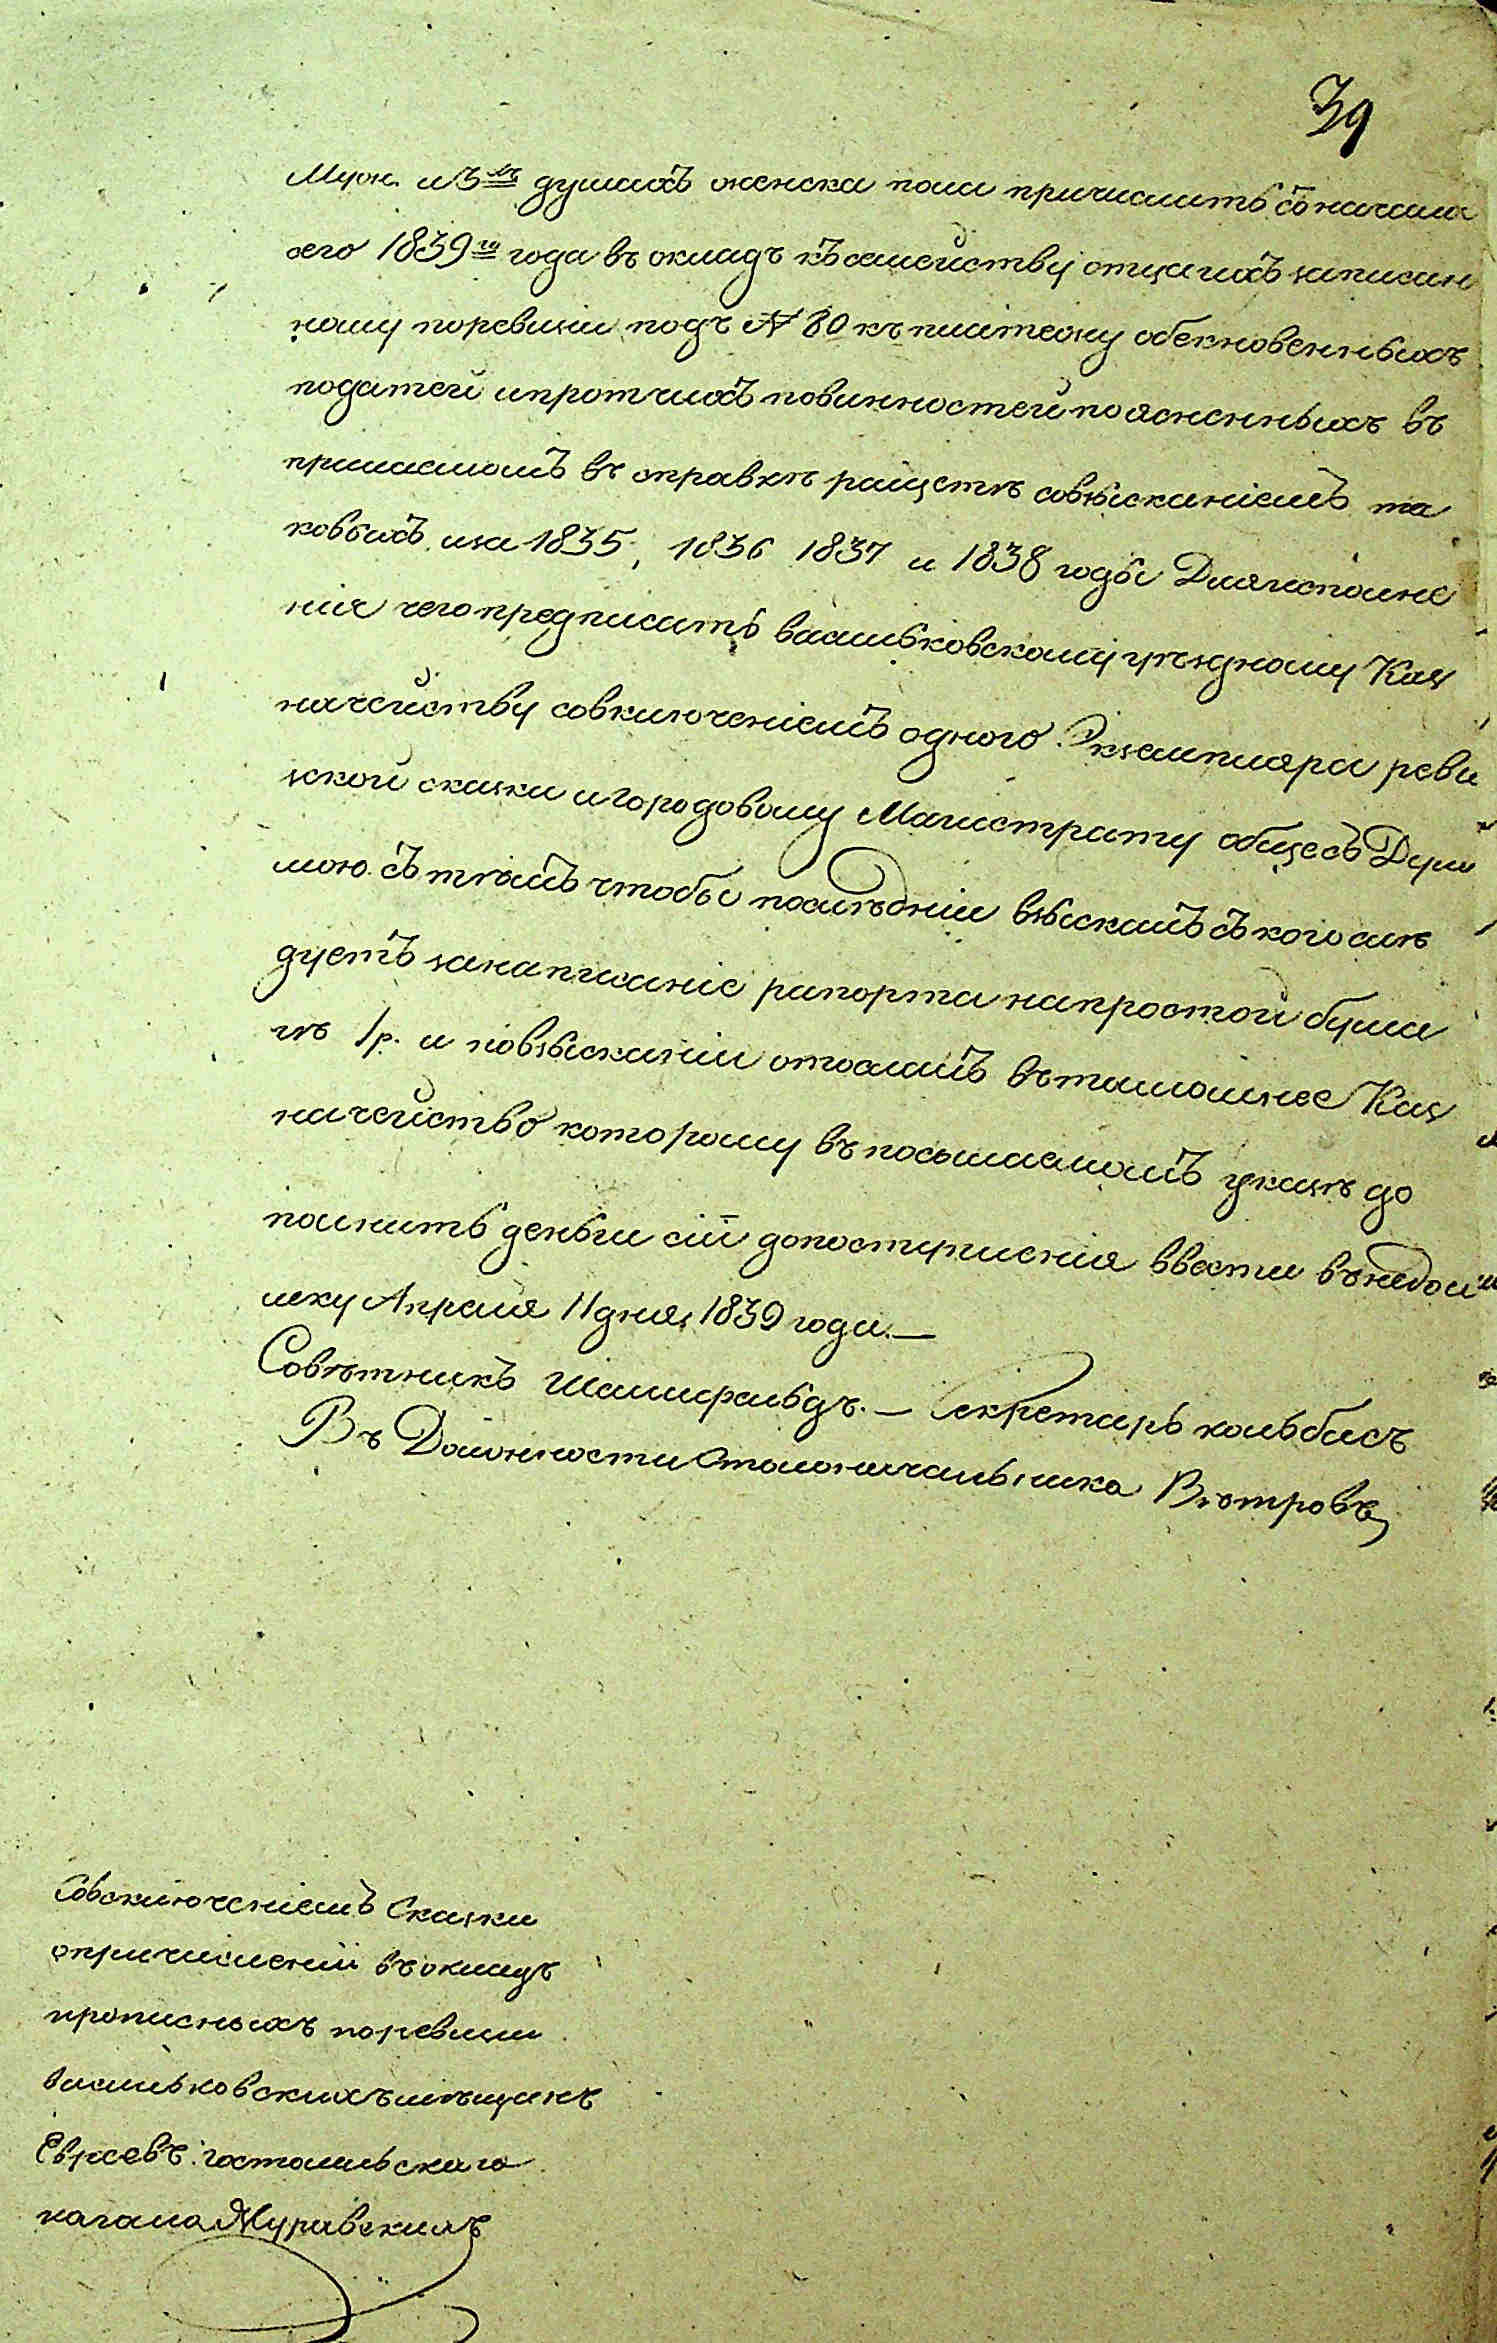 39
Муж. и 3<sup>хъ</sup> душахъ женска пола причислить съ начала
сего 1839<sup>го</sup> года въ окладъ къ семейству отца ихъ записан
ному поревизіи подъ № 80 къ платежу обекновенныхъ
податей ипротчихъ повинностей поясненныхъ въ
прилагаемомъ въ справкѣ ращетѣ совзысканіемъ та
ковыхъ иза 1835, 1836 1837 и 1838 годы Для исполне
нія чего предписать васильковскому уѣздному Каз
начейству совключеніемъ одного Экземпляра реви
зской сказки и городовому Магистрату общесъ Думою
мою. съ тѣмъ чтобы послѣдніи взыскавъ съ кого слѣ
дуетъ занаписаніе рапорта на простой бума
гѣ 1р. и повзысканіи отослалъ въ тамошнее Каз
начейство которому въ посылаемомъ указѣ до
полнить деньги сіи до поступленія ввести въ недоим
мку Апреля 11 дня 1839 года.—
Совѣтникъ — Секретарь кольбасъ
Въ Должности Столоначальника Вѣтровъ
Совключеніемъ Сказки
опричисленіи въ окладъ
прописныхъ поревизіи
васильковскихъ мѣщанъ
Евреевъ гостомльскаго
кагала Муравскихъ